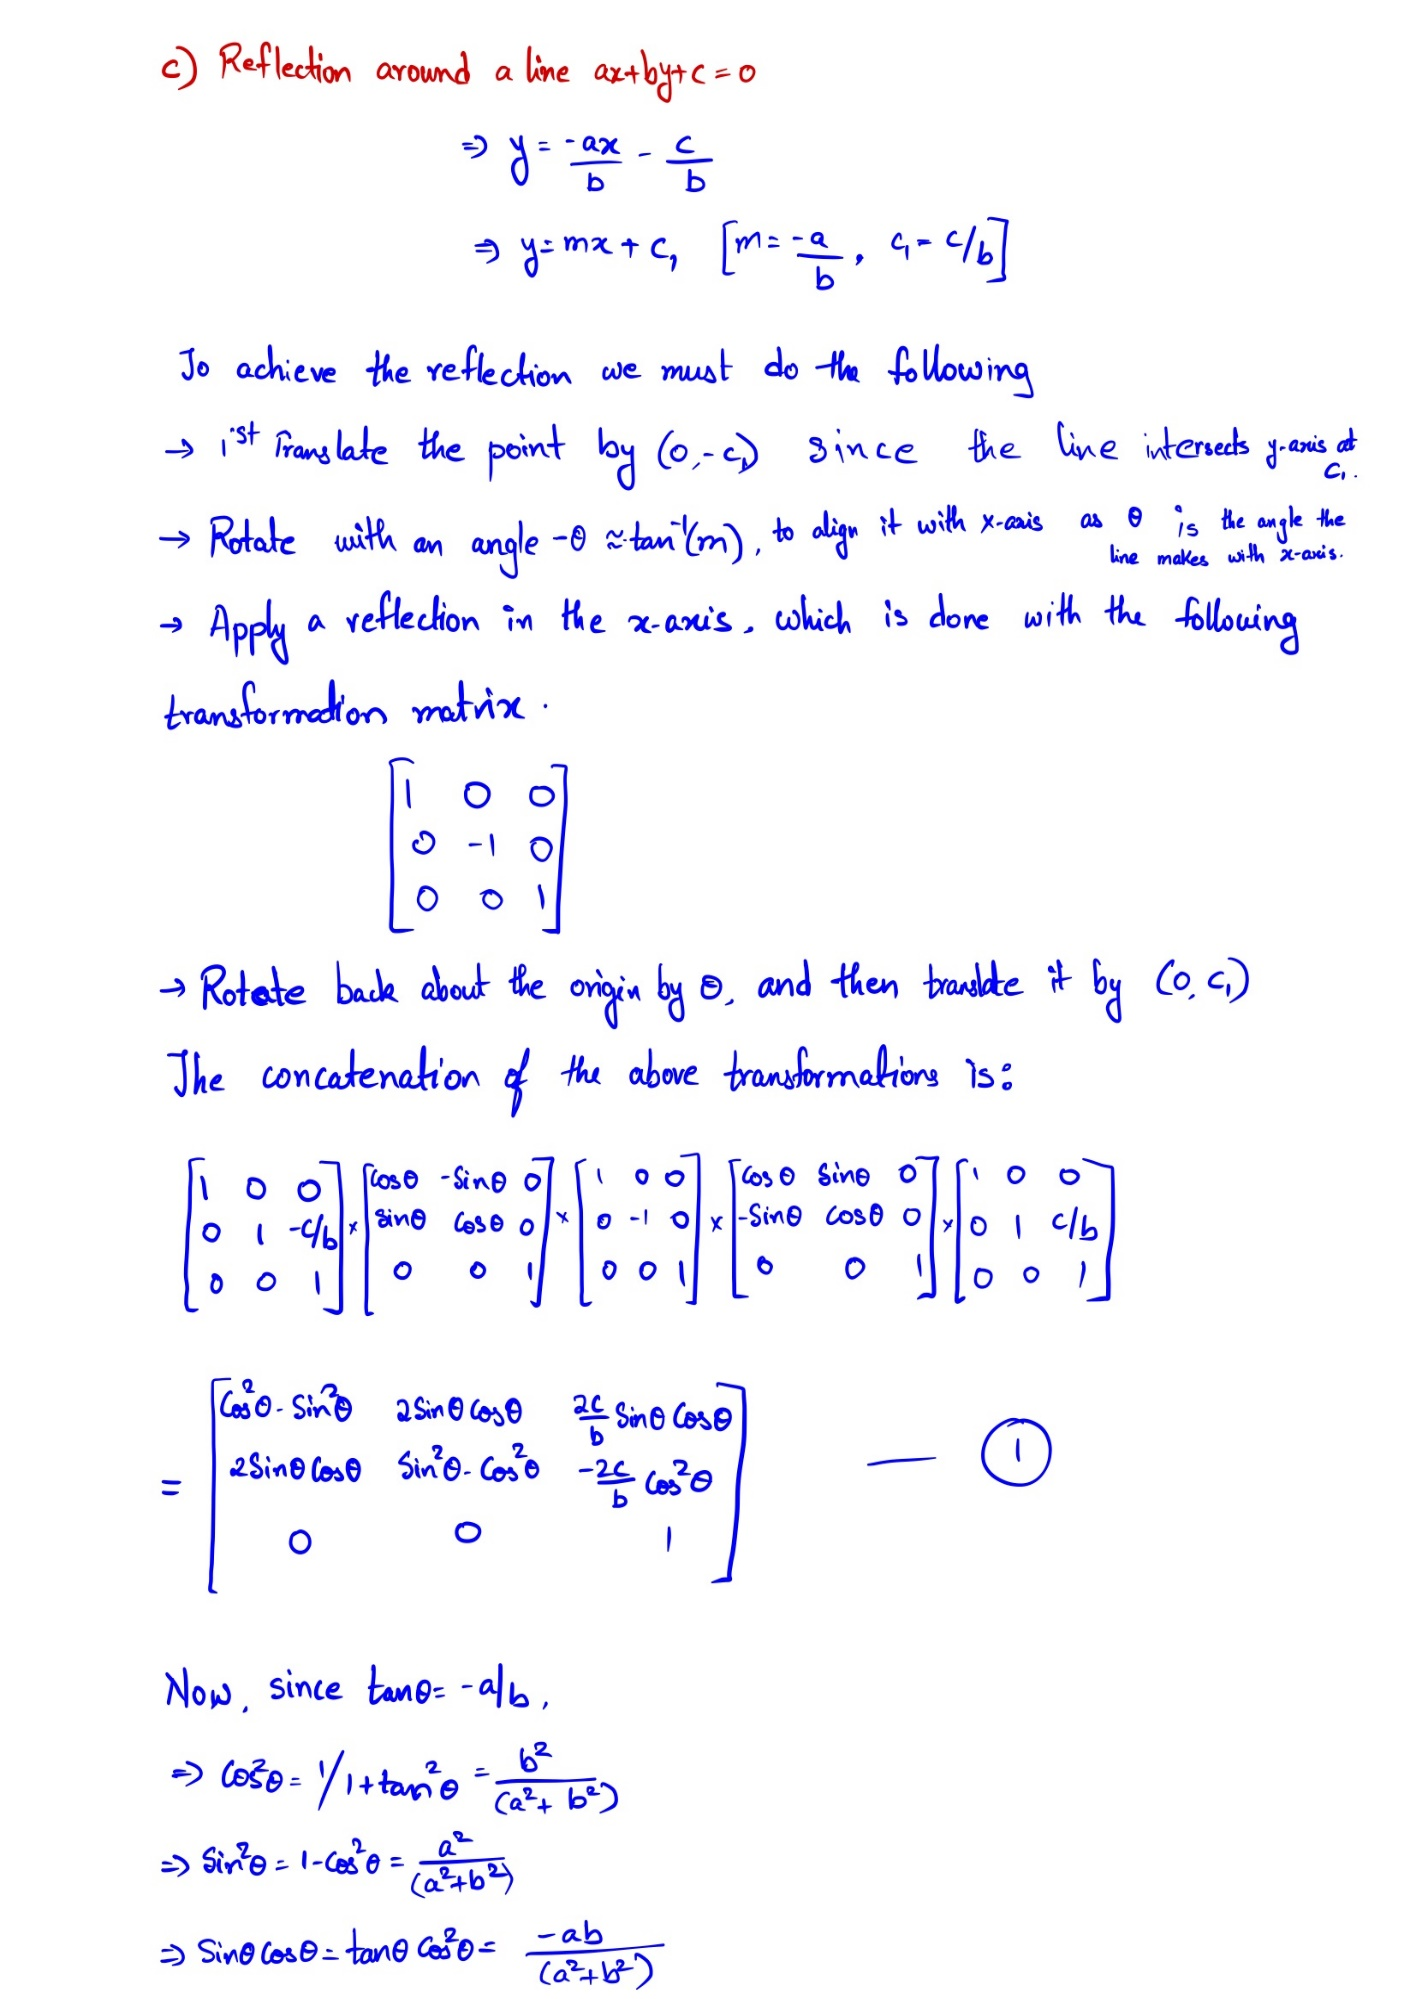 c) Reflection around a line ax+by+c=0
⇒ y = -ax/b - c/b
⇒ y = mx + c₁ [m = -a/b, c₁ = c/b]
To achieve the reflection we must do the following
→ 1st Translate the point by (0,-c₁) since the line intersects y-axis at c₁.
→ Rotate with an angle -θ ≈ tan⁻¹(m), to align it with x-axis as θ is the angle the line makes with x-axis.
→ Apply a reflection in the x-axis, which is done with the following
transformation matrix.
[1 0 0
0 -1 0
0 0 1]
→ Rotate back about the origin by θ, and then translate it by (0, c₁)
The concatenation of the above transformations is:
[1 0 0] [cosθ -sinθ 0] [1 0 0] [cosθ sinθ 0] [1 0 0]
[0 1 -c/b] × [sinθ cosθ 0] × [0 -1 0] × [-sinθ cosθ 0] × [0 1 c/b]
[0 0 1] [0 0 1] [0 0 1] [0 0 1] [0 0 1]
[cos²θ - sin²θ 2sinθcosθ 2c/b sinθcosθ]
= [2sinθcosθ sin²θ - cos²θ -2c/b cos²θ] — ①
[0 0 1]
Now, since tanθ = -a/b,
⇒ cos²θ = 1/1+tan²θ = b²/(a²+b²)
⇒ sin²θ = 1-cos²θ = a²/(a²+b²)
⇒ sinθcosθ = tanθ cos²θ = -ab/(a²+b²)